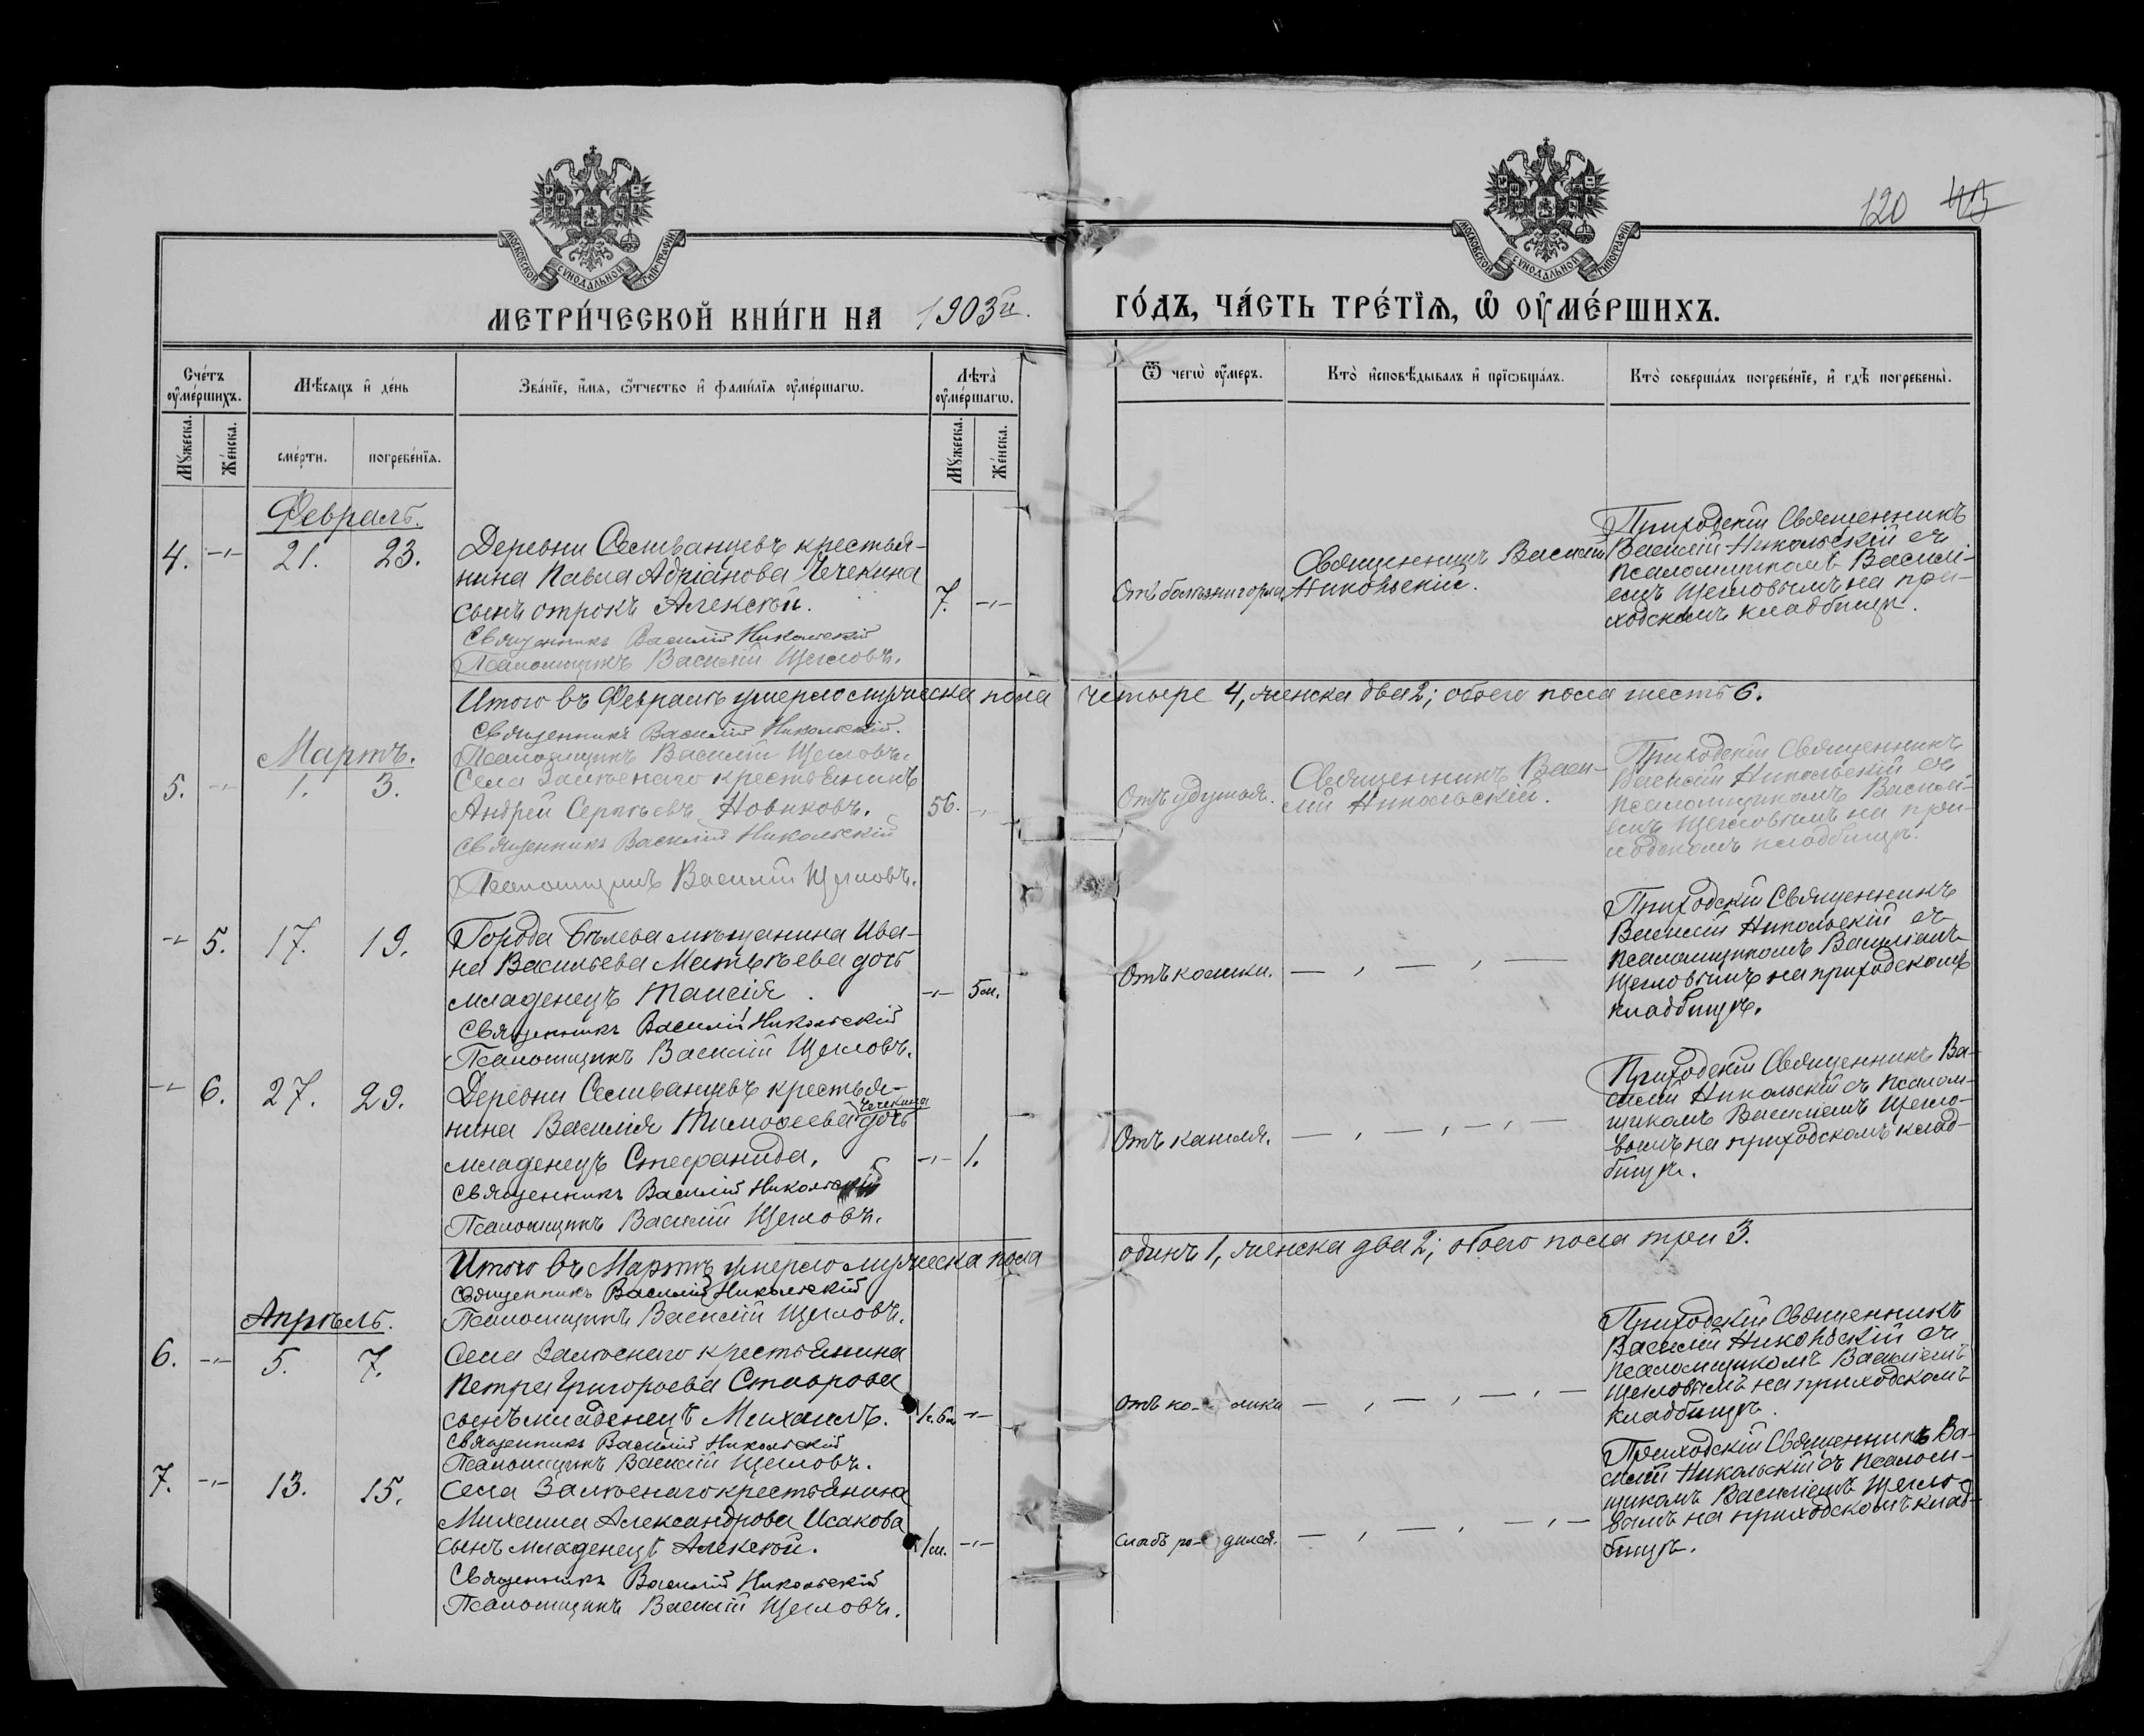 120 43
МОСКОВСКОЙ СѴНОДАЛЬНОЙ ТИПОГРАФІИ
МОСКОВСКОЙ СѴНОДАЛЬНОЙ ТИПОГРАФІИ
МЕТРИ́ЧЕСКОЙ КНИ́ГИ НА 1903й.
ГО́ДЪ, ЧА́СТЬ ТРЕ́ТІѦ, Ѡ҆ ОУ҆МЕ́РШИХЪ.
Сче́тъ оу҆ме́ршихъ.
Мѣ́сяцъ и҆ де́нь
Зва́нїе, и҆́мя, ѻ҆́тчество и҆ фами́лїя оу҆ме́ршагѡ.
Лѣта̀ оу҆ме́ршагѡ.
Ѿ чегѡ̀ оу҆́меръ.
Кто̀ и҆сповѣ́дывалъ и҆ прїѡбща́лъ.
Кто̀ соверша́лъ погребе́нїе, и҆ гдѣ̀ погребены̀.
Мꙋ́жеска.
Же́нска.
сме́рти.
погребе́нїя.
Мꙋ́жеска.
Же́нска.
Февраль.
4. -"- 21. 23.
Деревни Селиванцевъ крестья-
нина Павла Адріанова Чечекина
сынъ отрокъ Алексѣй. 7. -"-
Священникъ Василій Никольскій
Псаломщикъ Василій Щегловъ.
Отъ болѣзни горла.
Священникъ Василій
Никольскій.
Приходскій Священникъ
Василій Никольскій съ
псаломщикомъ Василі-
емъ Щегловымъ на при-
ходскомъ кладбищѣ.
Итого въ Февралѣ умерло мужеска пола четыре 4, женска два 2; обоего пола шесть 6.
Священникъ Василій Никольскій.
Псаломщикъ Василій Щегловъ.
Мартъ.
5. -"- 1. 3.
Села Залѣснаго крестьянинъ
Андрей Сергѣевъ Новиковъ. 56. -"-
Священникъ Василій Никольскій
Псаломщикъ Василій Щегловъ.
Отъ удушья.
Священникъ Васи-
лій Никольскій.
Приходскій Священникъ
Василій Никольскій съ
псаломщикомъ Василі-
емъ Щегловымъ на при-
ходскомъ кладбищѣ.
-"- 5. 17. 19.
Города Бѣлева мѣщанина Ива-
на Васильева Матвѣева дочь
младенецъ Таисія. -"- 5 м.
Священникъ Василій Никольскій
Псаломщикъ Василій Щегловъ.
Отъ колики. — , — , —
Приходскій Священникъ
Василій Никольскій съ
псаломщикомъ Василіемъ
Щегловымъ на приходскомъ
кладбищѣ.
-"- 6. 27. 29.
Деревни Селиванцевъ крестья-
Чечекина
нина Василія Тимоѳеева дочь
младенецъ Стефанида. -"- 1.
Священникъ Василій Никольскій
Псаломщикъ Василій Щегловъ.
Отъ кашля. — , — , — , —
Приходскій Священникъ Ва-
силій Никольскій съ псалом-
щикомъ Василіемъ Щегло-
вымъ на приходскомъ клад-
бищѣ.
Итого въ Мартѣ умерло мужеска пола одинъ 1, женска два 2; обоего пола три 3.
Священникъ Василій Никольскій
Псаломщикъ Василій Щегловъ.
Апрѣль.
6. -"- 5. 7.
Села Залѣснаго крестьянина
Петра Григорьева
сынъ младенецъ Михаилъ. 1 г. 6 м. -"-
Священникъ Василій Никольскій
Псаломщикъ Василій Щегловъ.
Отъ ко- лики — , — , — , —
Приходскій Священникъ
Василій Никольскій съ
псаломщикомъ Василіемъ
Щегловымъ на приходскомъ
кладбищѣ.
7. -"- 13. 15.
Села Залѣснаго крестьянина
Михаила Александрова Исакова
сынъ младенецъ Алексѣй. 1 м. -"-
Священникъ Василій Никольскій
Псаломщикъ Василій Щегловъ.
Слабъ ро- дился. — , — , — , —
Приходскій Священникъ Ва-
силій Никольскій съ псалом-
щикомъ Василіемъ Щегло-
вымъ на приходскомъ клад-
бищѣ.